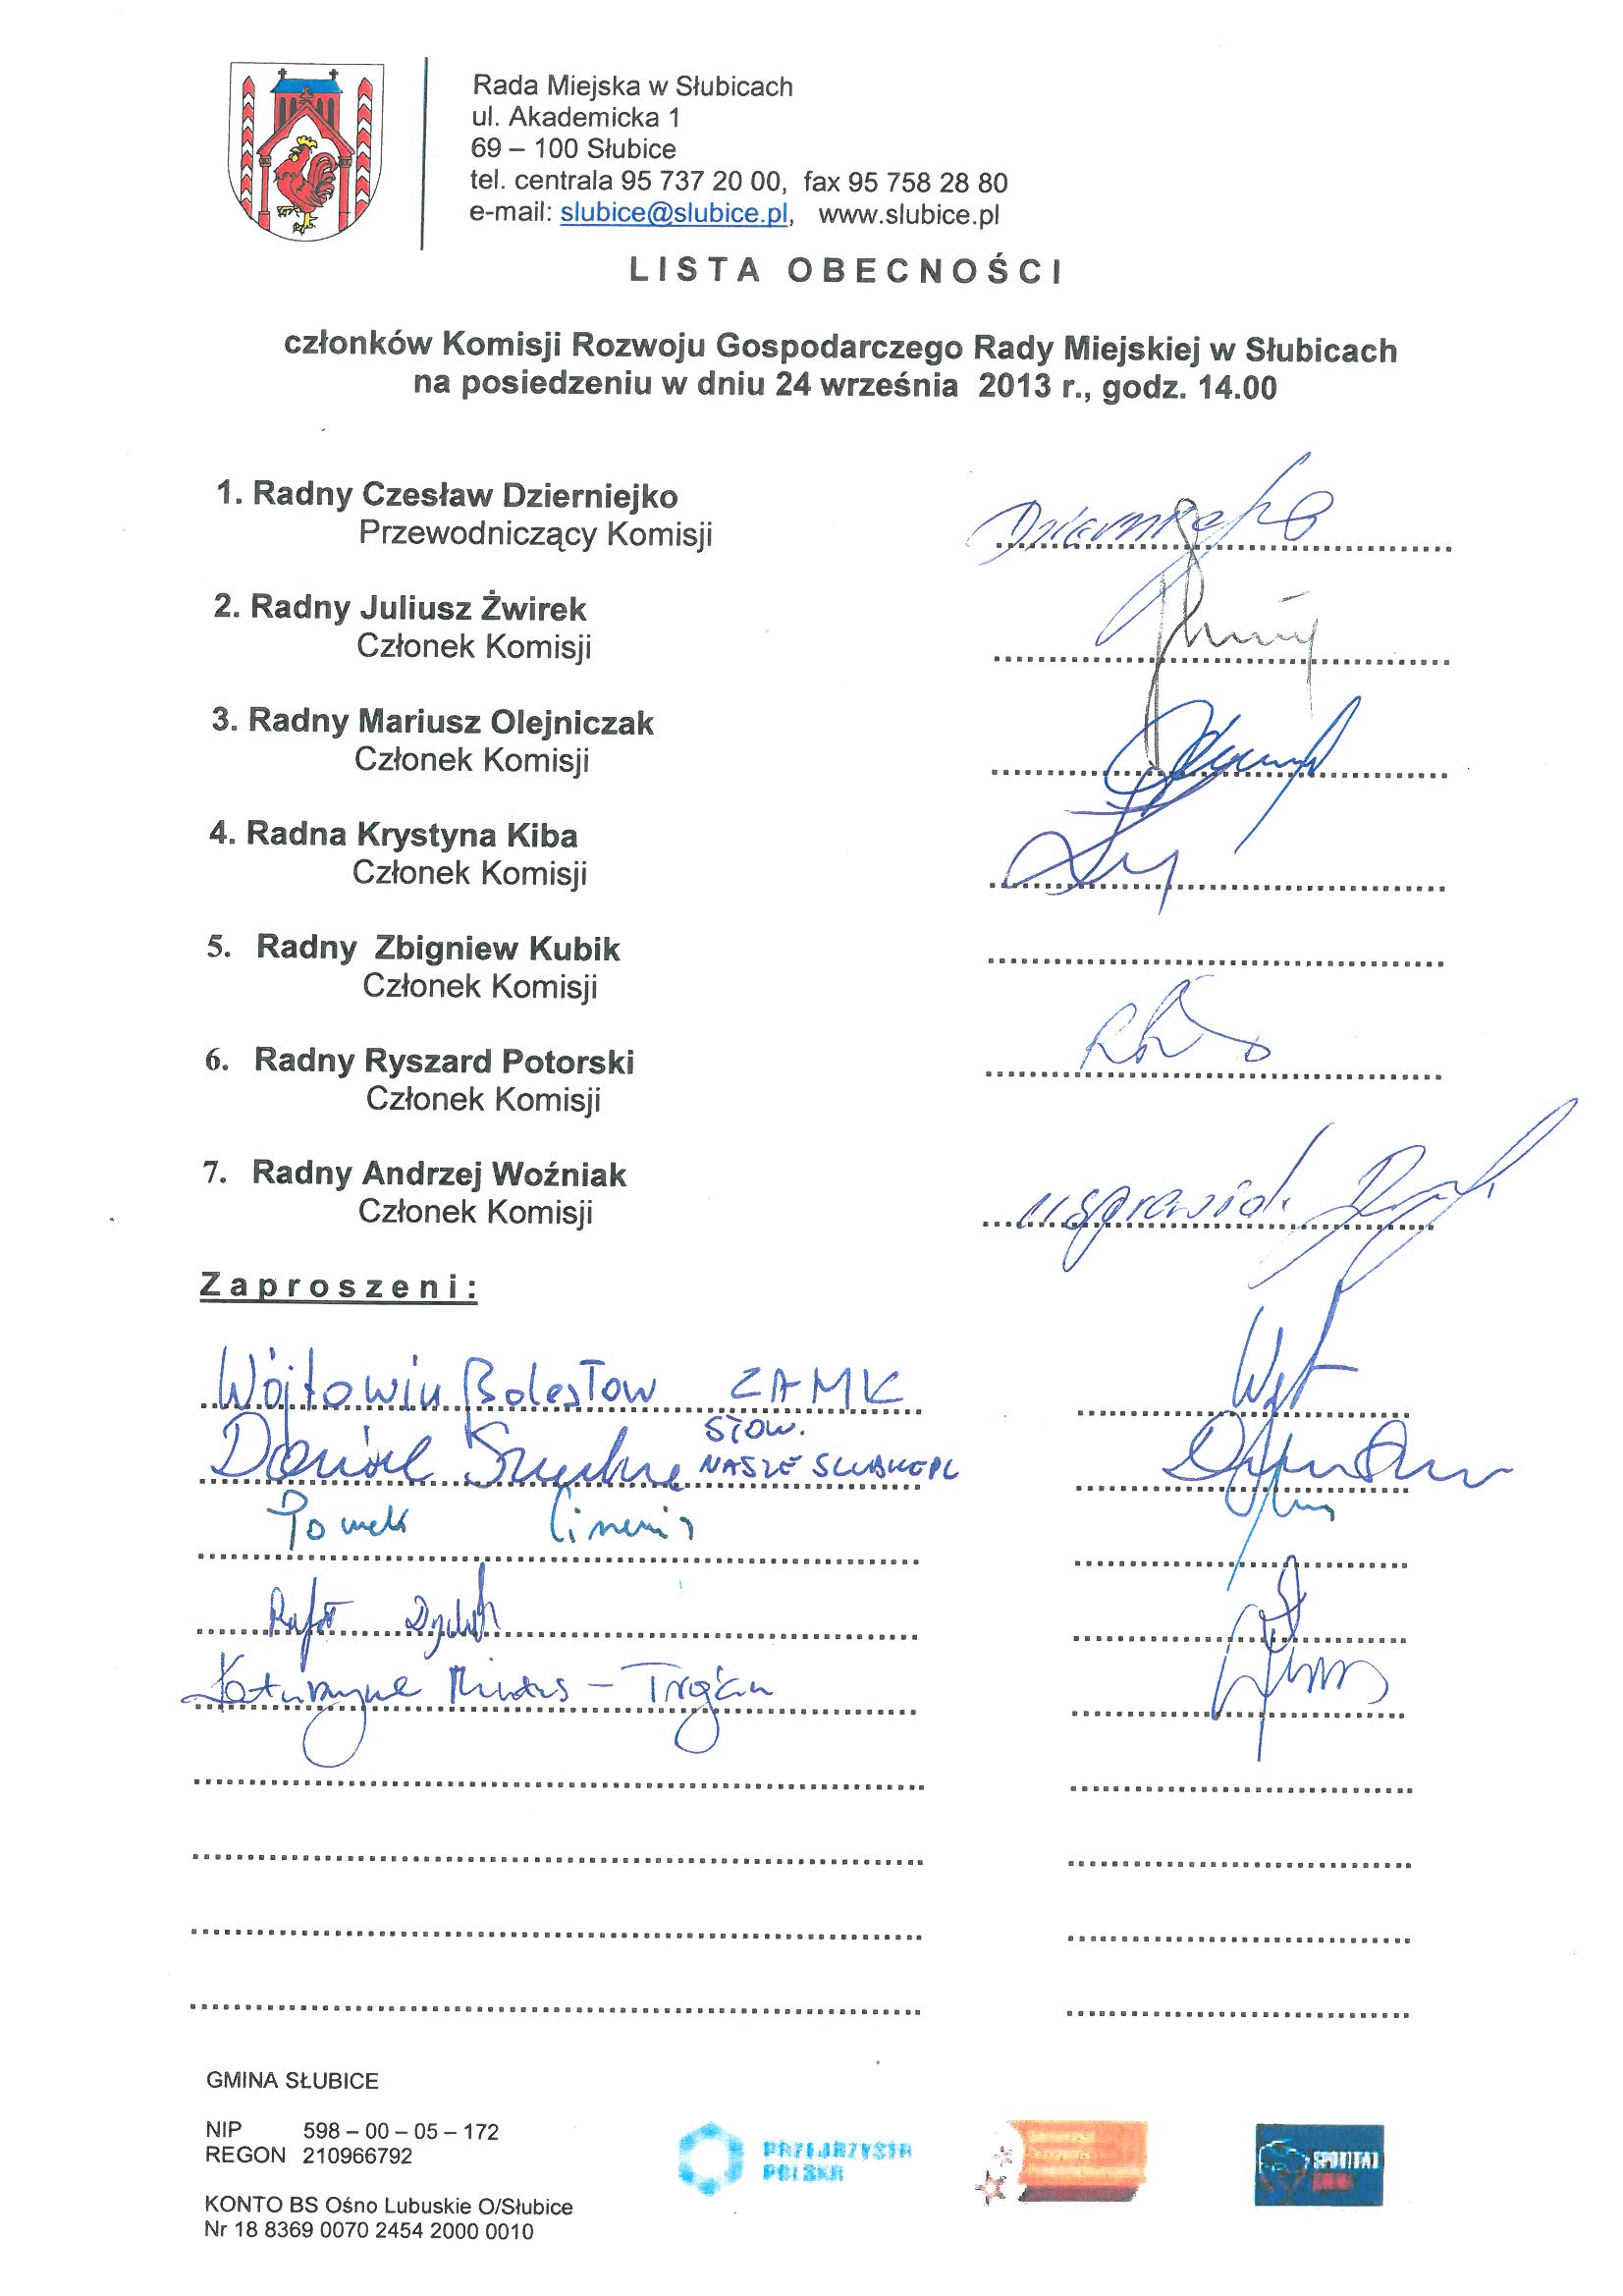 Rada Miejska w Słubicach
ul. Akademicka 1
69 – 100 Słubice
tel. centrala 95 737 20 00, fax 95 758 28 80
e-mail: slubice@slubice.pl, www.slubice.pl
LISTA OBECNOŚCI
członków Komisji Rozwoju Gospodarczego Rady Miejskiej w Słubicach
na posiedzeniu w dniu 24 września 2013 r., godz. 14.00
1. Radny Czesław Dzierniejko
Przewodniczący Komisji
2. Radny Juliusz Żwirek
Członek Komisji
3. Radny Mariusz Olejniczak
Członek Komisji
4. Radna Krystyna Kiba
Członek Komisji
5. Radny Zbigniew Kubik
Członek Komisji
6. Radny Ryszard Potorski
Członek Komisji
7. Radny Andrzej Woźniak
Członek Komisji
usprawied.
Zaproszeni:
Bolesław ZAMK
STOW.
Daniel NASZE SLUBICE.PL
Tomek
Rafał
Katarzyna - Trojan
GMINA SŁUBICE
NIP 598 – 00 – 05 – 172
REGON 210966792
KONTO BS Ośno Lubuskie O/Słubice
Nr 18 8369 0070 2454 2000 0010
PRZEJRZYSTA
POLSKA